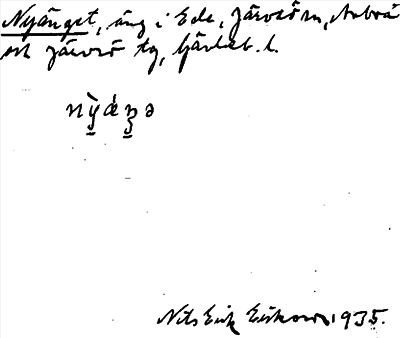 Nyänget, äng i Ede, Järvsö sn, Arbrå
och Järvsö tg, Gävleb. l.
nỳ̠ǽŋ̠ə
Nils Eric Eriksson 1935.